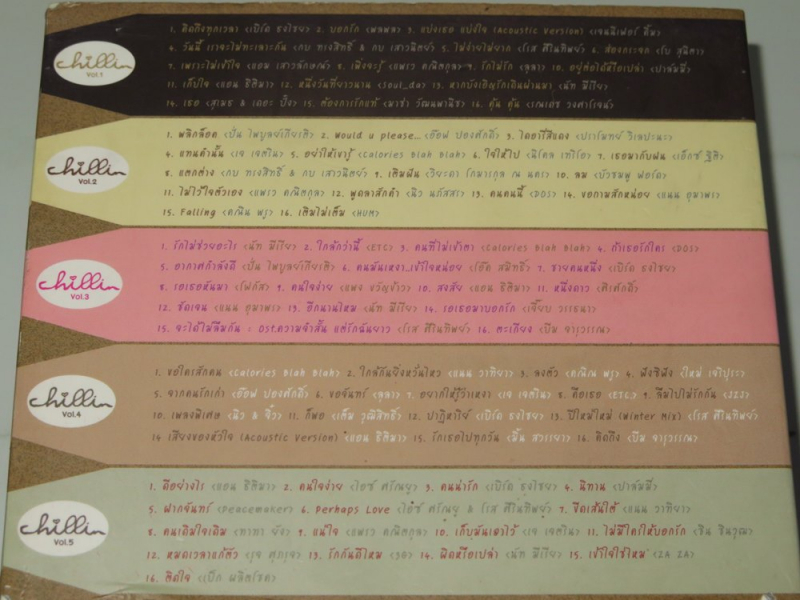 chillin
Vol.1
1. คิดถึงทุกเวลา <เบิร์ด ธงไชย> 2. บอกรัก <พลพล> 3. แบ่งเธอ แบ่งใจ (Acoustic Version) <เจนนิเฟอร์ คิ้ม>
4. วันนี้ เราจะไม่ทะเลาะกัน <กบ ทรงสิทธิ์ & กบ เสาวนิตย์> 5. ไม่ง่ายไม่ยาก <โรส ศิรินทิพย์>
7. เพราะไม่เข้าใจ <แอม เสาวลักษณ์> 8. เพิ่งจะรู้ <แพรว คณิตกุล> 9. รักไม่รัก <ลุลา> 10. อยู่ต่อได้หรือเปล่า <ปาล์มมี่>
11. เก็บใจ <แอน ธิติมา> 12. หนึ่งวันที่ยาวนาน <Soul_da> 13. หากบังเอิญรักเดินผ่านมา <นัท มีเรีย>
14. เธอ 15. ต้องการรักแท้ <มาช่า วัฒนพานิช> 16. คุ้น คุ้น
chillin
Vol.2
1. พลิกล็อค <ปั่น ไพบูลย์เกียรติ> 2. Would u please... <อ๊อฟ ปองศักดิ์> 3. ไดอารี่สีแดง <ปราโมทย์ วิเลปะนะ>
4. แทนคำนั้น <เจ เจตริน> 5. อย่าให้เขารู้ <Calories Blah Blah> 6. ใจให้ไป <นิโคล เทริโอ> 7. เธอมากับฝน <เอ็กซ์ ฐิติ>
8. แตกต่าง <กบ ทรงสิทธิ์ & กบ เสาวนิตย์> 9. เติมฝัน <วิยะดา โกมารกุล ณ นคร> 10. ลม <บัวชมพู ฟอร์ด>
11. ไม่ไว้ใจตัวเอง <แพรว คณิตกุล> 12. พูดลาสักคำ <นิว นภัสสร> 13. คนคนนี้ <DOS> 14. ขอถามสักหน่อย <แนน อุมาพร>
15. Falling <คณิน พรู> 16. เติมไม่เต็ม <HUM>
chillin
Vol.3
1. รักไม่ช่วยอะไร <นัท มีเรีย> 2. ใกล้กว่านี้ <ETC> 3. คนที่ไม่เข้าตา <Calories Blah Blah> 4. ถ้าเธอรักใคร <DOS>
5. อากาศกำลังดี <ปั่น ไพบูลย์เกียรติ> 6. คนมันเหงา...เข้าใจหน่อย 7. ชายคนหนึ่ง <เบิร์ด ธงไชย>
8. เธอเธอหันมา <โฟกัส> 9. คนใจง่าย 10. สงสัย <แอน ธิติมา> 11. หนึ่งดาว <ศิรศักดิ์>
12. ชัดเจน <แนน อุมาพร> 13. อีกนานไหม <นัท มีเรีย> 14. รอเธอมาบอกรัก <เจี๊ยบ วรรธนา>
15. จะได้ไม่ลืมกัน : Ost.ความจำสั้น แต่รักฉันยาว <โรส ศิรินทิพย์> 16. ตะเกียง <บีม จารุวรรณ>
chillin
Vol.4
1. ขอใครสักคน <Calories Blah Blah> 2. ใกล้กันยิ่งหวั่นไหว <แนน วาทิยา> 3. ลงตัว <คณิณ พรู> 4. ฟังซิฟัง <ใหม่ เจริปุระ>
5. จากคนรักเก่า <อ๊อฟ ปองศักดิ์> 6. ขอจันทร์ <ลุลา> 7. อยากให้รู้ว่าเหงา <เจ เจตริน> 8. คือเธอ <ETC.> 9. ลืมไปไม่รักกัน <ZEZ>
10. เพลงพิเศษ <นิว & จิ๋ว> 11. ก็พอ <เต็ม วุฒิสิทธิ์> 12. ปาฏิหาริย์ <เบิร์ด ธงไชย> 13. ปีใหม่ใหม่ (Winter Mix) <โรส ศิรินทิพย์>
14. เสียงของหัวใจ (Acoustic Version) <แอน ธิติมา> 15. รักเธอไปทุกวัน <มิ้น สวรรยา> 16. คิดถึง <บีม จารุวรรณ>
chillin
Vol.5
1. คืออย่างไร <แอน ธิติมา> 2. คนใจง่าย <ไอซ์ ศรัณยู> 3. คนน่ารัก <เบิร์ด ธงไชย> 4. นิทาน <ปาล์มมี่>
5. ฝากจันทร์ <Peacemaker> 6. Perhaps Love <ไอซ์ ศรัณยู & โรส ศิรินทิพย์> 7. ขีดเส้นใต้ <แนน วาทิยา>
8. คนเดิมใจเดิม <ทาทา ยัง> 9. แน่ใจ <แพรว คณิตกุล> 10. เก็บมันเอาไว้ <เจ เจตริน> 11. ไม่มีใครให้บอกรัก <ชิน ชินวุฒ>
12. หมดเวลาแก้ตัว <รุจ ศุภรุจ> 13. รักกันดีไหม <30> 14. ผิดหรือเปล่า <นัท มีเรีย> 15. เข้าใจใช่ไหม <ZA ZA>
16. ติดใจ <เป๊ก ผลิตโชค>